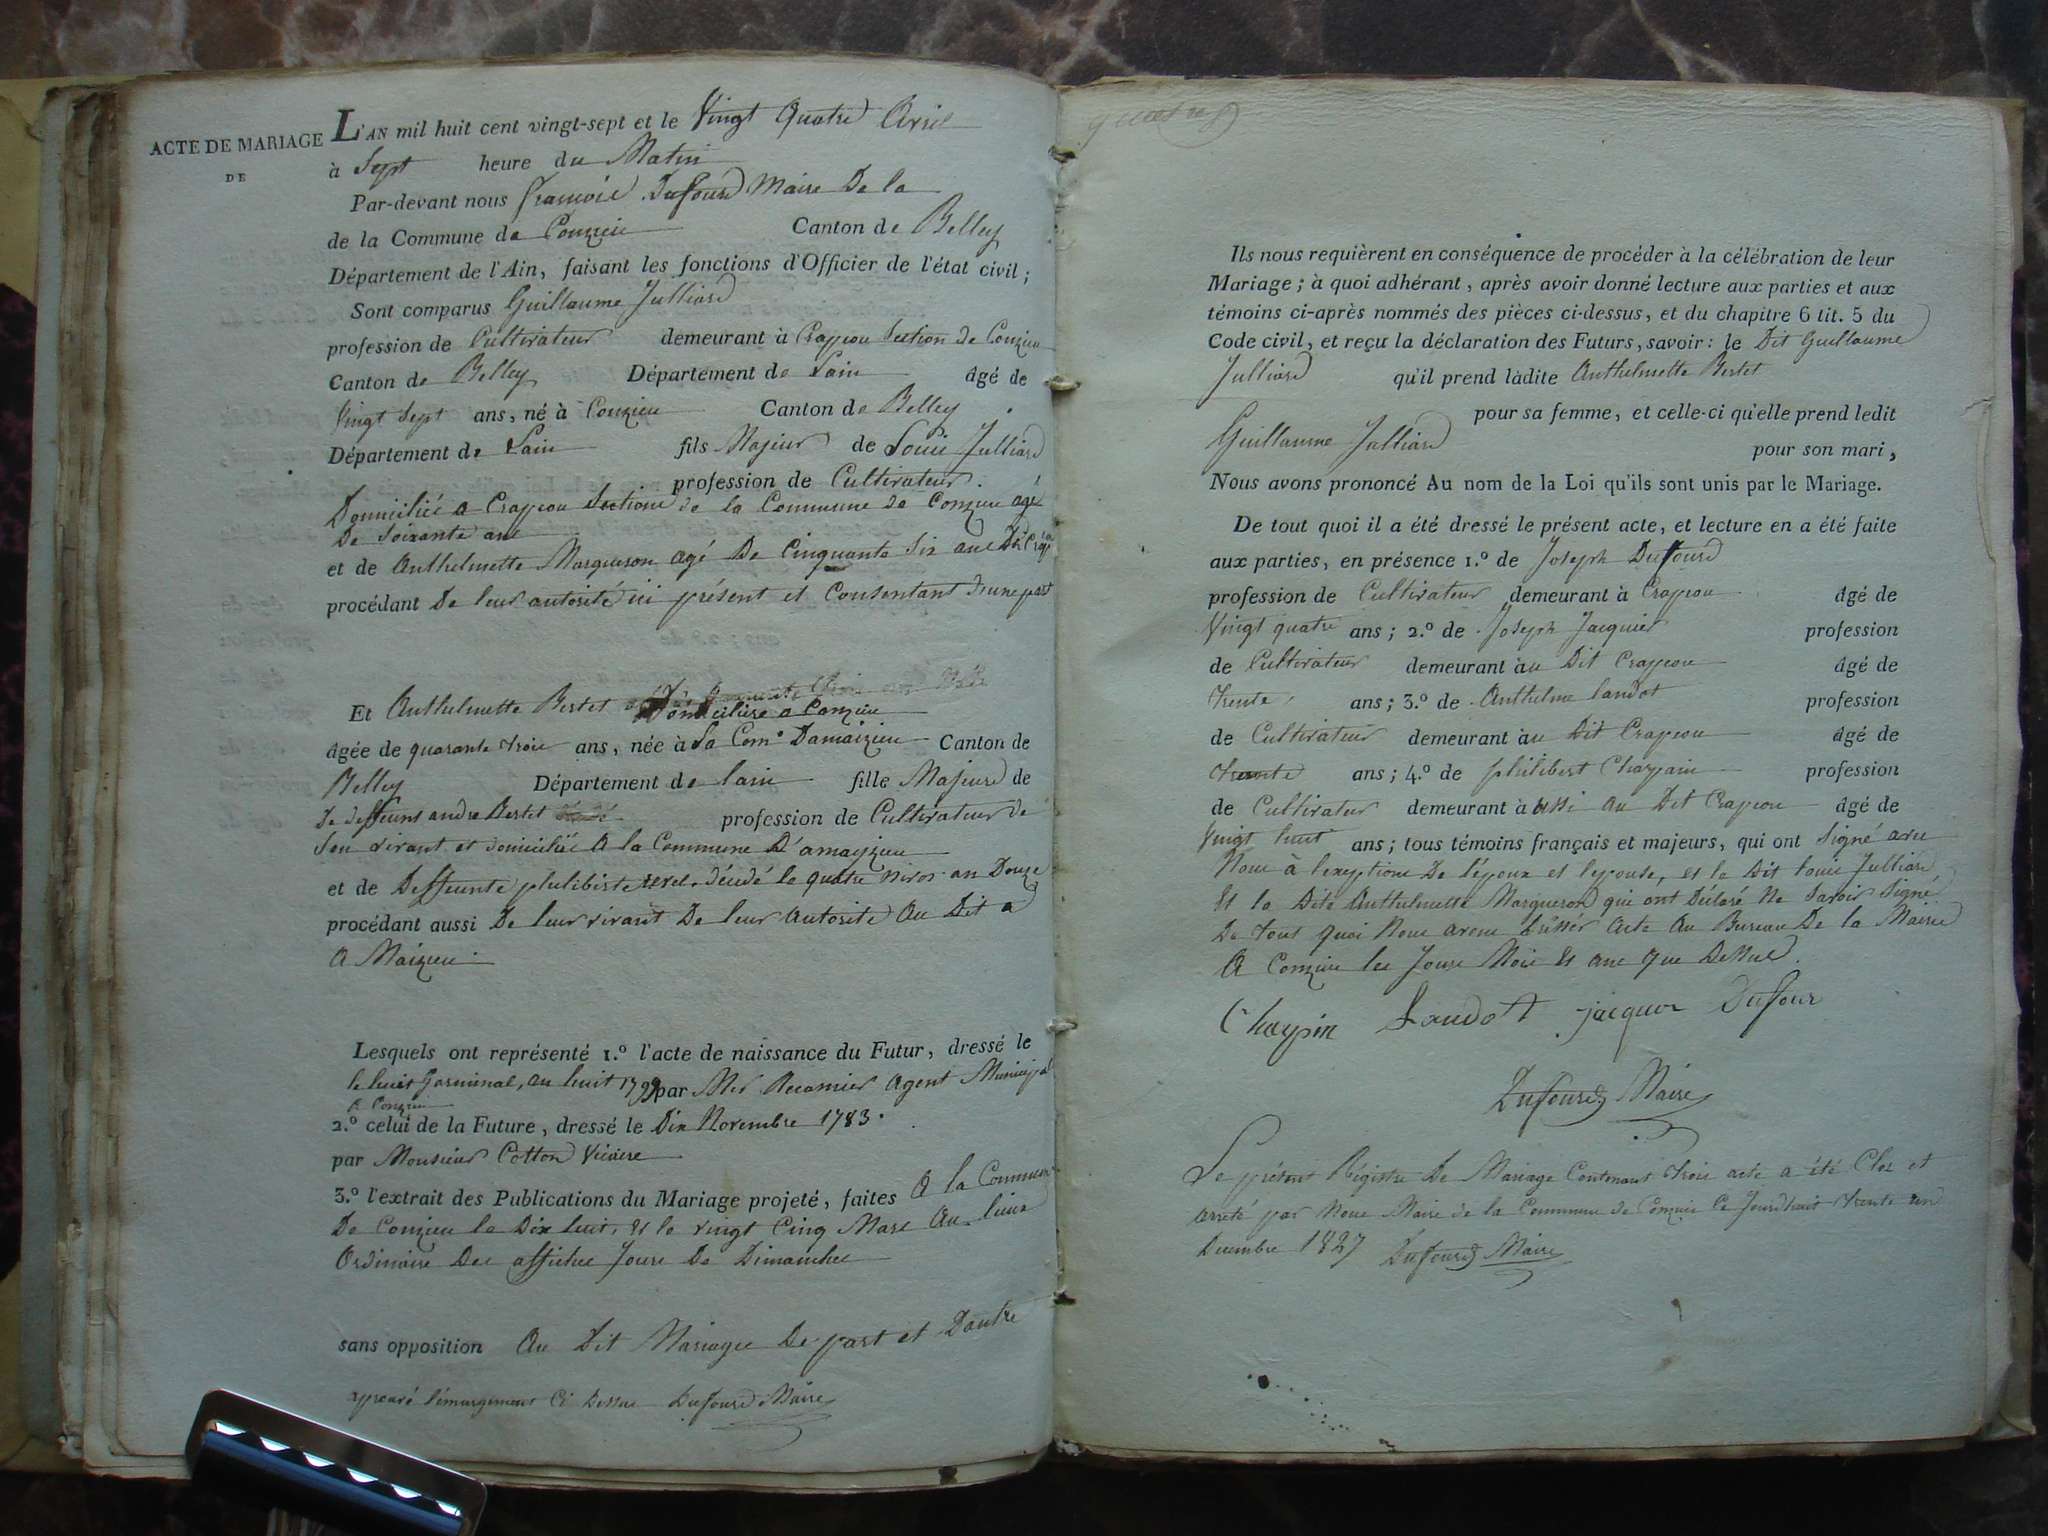 ACTE DE MARIAGE
DE
L'AN mil huit cent vingt-sept et le Vingt Quatre Avril
à Sept heure du Matin
Par-devant nous François Dufourd Maire De la
de la Commune de Conzieu Canton de Belley
Département de l'Ain, faisant les fonctions d'Officier de l'état civil ;
Sont comparus Guillaume Julliard
profession de Cultivateur demeurant à Crapeou Section de Conzieu
Canton de Belley Département de Lain âgé de
Vingt Sept ans, né à Conzieu Canton de Belley
Département de Lain fils Majeur de Louis Julliard
profession de Cultivateur.
Domicilié a Crapeou Sections de la Commune de Conzieu agé
De Soixante ans
et de Anthelmette Marqueron agé De Cinquante Six ans
procédant De leur autorité ici présent et Consentant d'une part
Et Anthelmette Bertet Domiciliée a Conzieu
âgée de quarante trois ans, née à La Com.e Damaizieu Canton de
Belley Département de lain fille Majeure de
de deffunt andré Bertet profession de Cultivateur de
Son vivant et domicilié A la Commune D'amayzieu
et de Deffeunte philiberte décédé le quatre nivos an Douze
procédant aussi De leur vivant De leur Autorité Au Dit a
A Maizieu.
Lesquels ont représenté 1.º l'acte de naissance du Futur, dressé le
le huit Germinal, an huit 1799 par Mr Recamier Agent Municipal
A Conzieu
2.º celui de la Future, dressé le Dix Novembre 1783.
par Monsieur Cotton Vicaire
3.º l'extrait des Publications du Mariage projeté, faites A la Commune
De Conzieu le Dix huit, et le vingt Cinq Mars Au lieux
Ordinaire Des affiches Jours De Dimanches
sans opposition Au Dit Mariages De part et Dautre
approuvé l'émargement Ci Dessus Dufourd Maire
Ils nous requièrent en conséquence de procéder à la célébration de leur
Mariage ; à quoi adhérant, après avoir donné lecture aux parties et aux
témoins ci-après nommés des pièces ci-dessus, et du chapitre 6 tit. 5 du
Code civil, et reçu la déclaration des Futurs, savoir : le Dit Guillaume
Julliard qu'il prend ladite Anthelmette Bertet
pour sa femme, et celle-ci qu'elle prend ledit
Guillaume Julliard pour son mari,
Nous avons prononcé Au nom de la Loi qu'ils sont unis par le Mariage.
De tout quoi il a été dressé le présent acte, et lecture en a été faite
aux parties, en présence 1.º de Joseph Dufourd
profession de Cultivateur demeurant à Crapeou âgé de
Vingt quatre ans ; 2.º de Joseph Jacquier profession
de Cultivateur demeurant au Dit Crapeou âgé de
trente ans ; 3.º de Anthelme Landot profession
de Cultivateur demeurant au Dit Crapeou âgé de
trente ans ; 4.º de philibert Chaypain profession
de Cultivateur demeurant à ussi au Dit Crapeou âgé de
Vingt huit ans ; tous témoins français et majeurs, qui ont Signé avec
Nous à l'exeptions De l'époux et lepouse, et le Dit Louis Julliard
Et la Dite Anthelmette Marqueron qui ont Déclaré Ne Savoir Signé.
De tout quoi Nous avons Dressér Acte Au Bureau De la Mairie
A Conzieu les Jours Mois Et ans que Dessus.
Chaypin Landot jacquer Dufour
Dufourd Maire
Le présent Régistre De Mariage Contenant trois acte a été Clos et
arreté par Nous Maire de la Commune de Conzieu Ce Jourdhuit trente un
Decembre 1827 Dufourd Maire